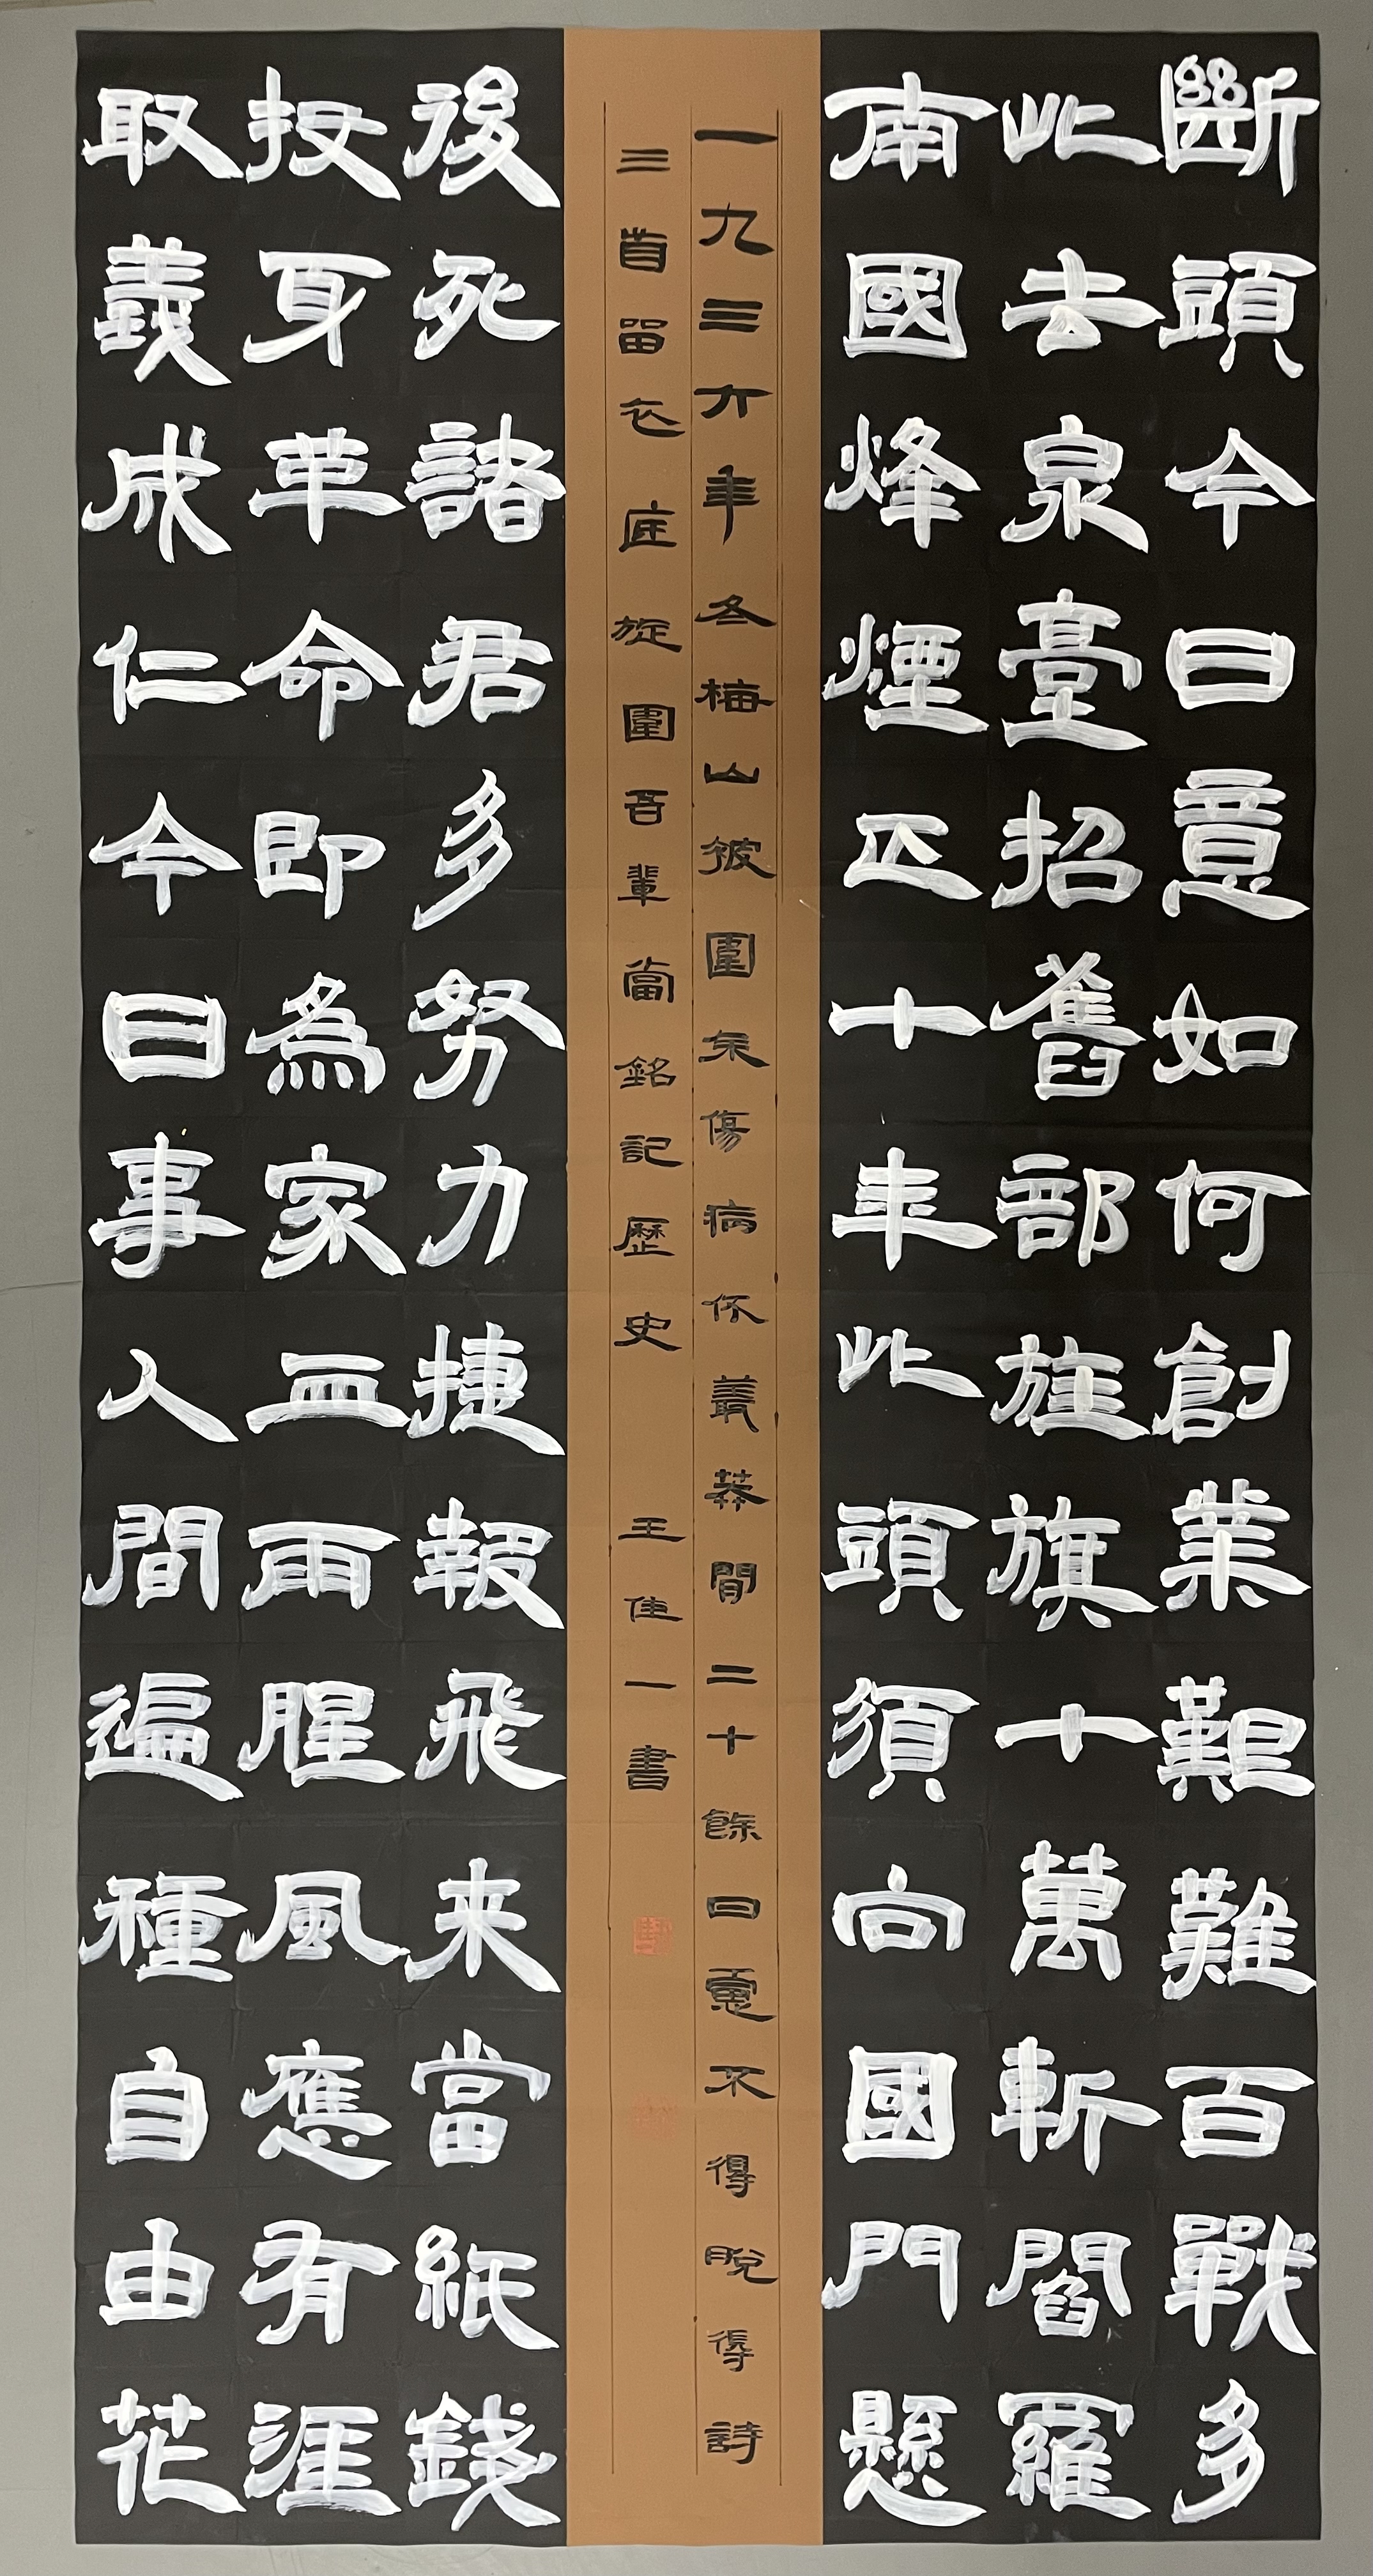 斷頭今日意如何創業艱難百戰多
此去泉臺招舊部旌旗十萬斬閻羅
南國烽煙正十年此頭須向國門懸
一九三六年冬梅山被圍余傷病伏叢莽閒二十餘日慮不得脫得詩
三首留衣底旋圍吾輩當銘記歷史 王佳一書
後死諸君多努力捷報飛来當紙錢
投身革命即為家血雨腥風應有涯
取義成仁今日事人間遍種自由花